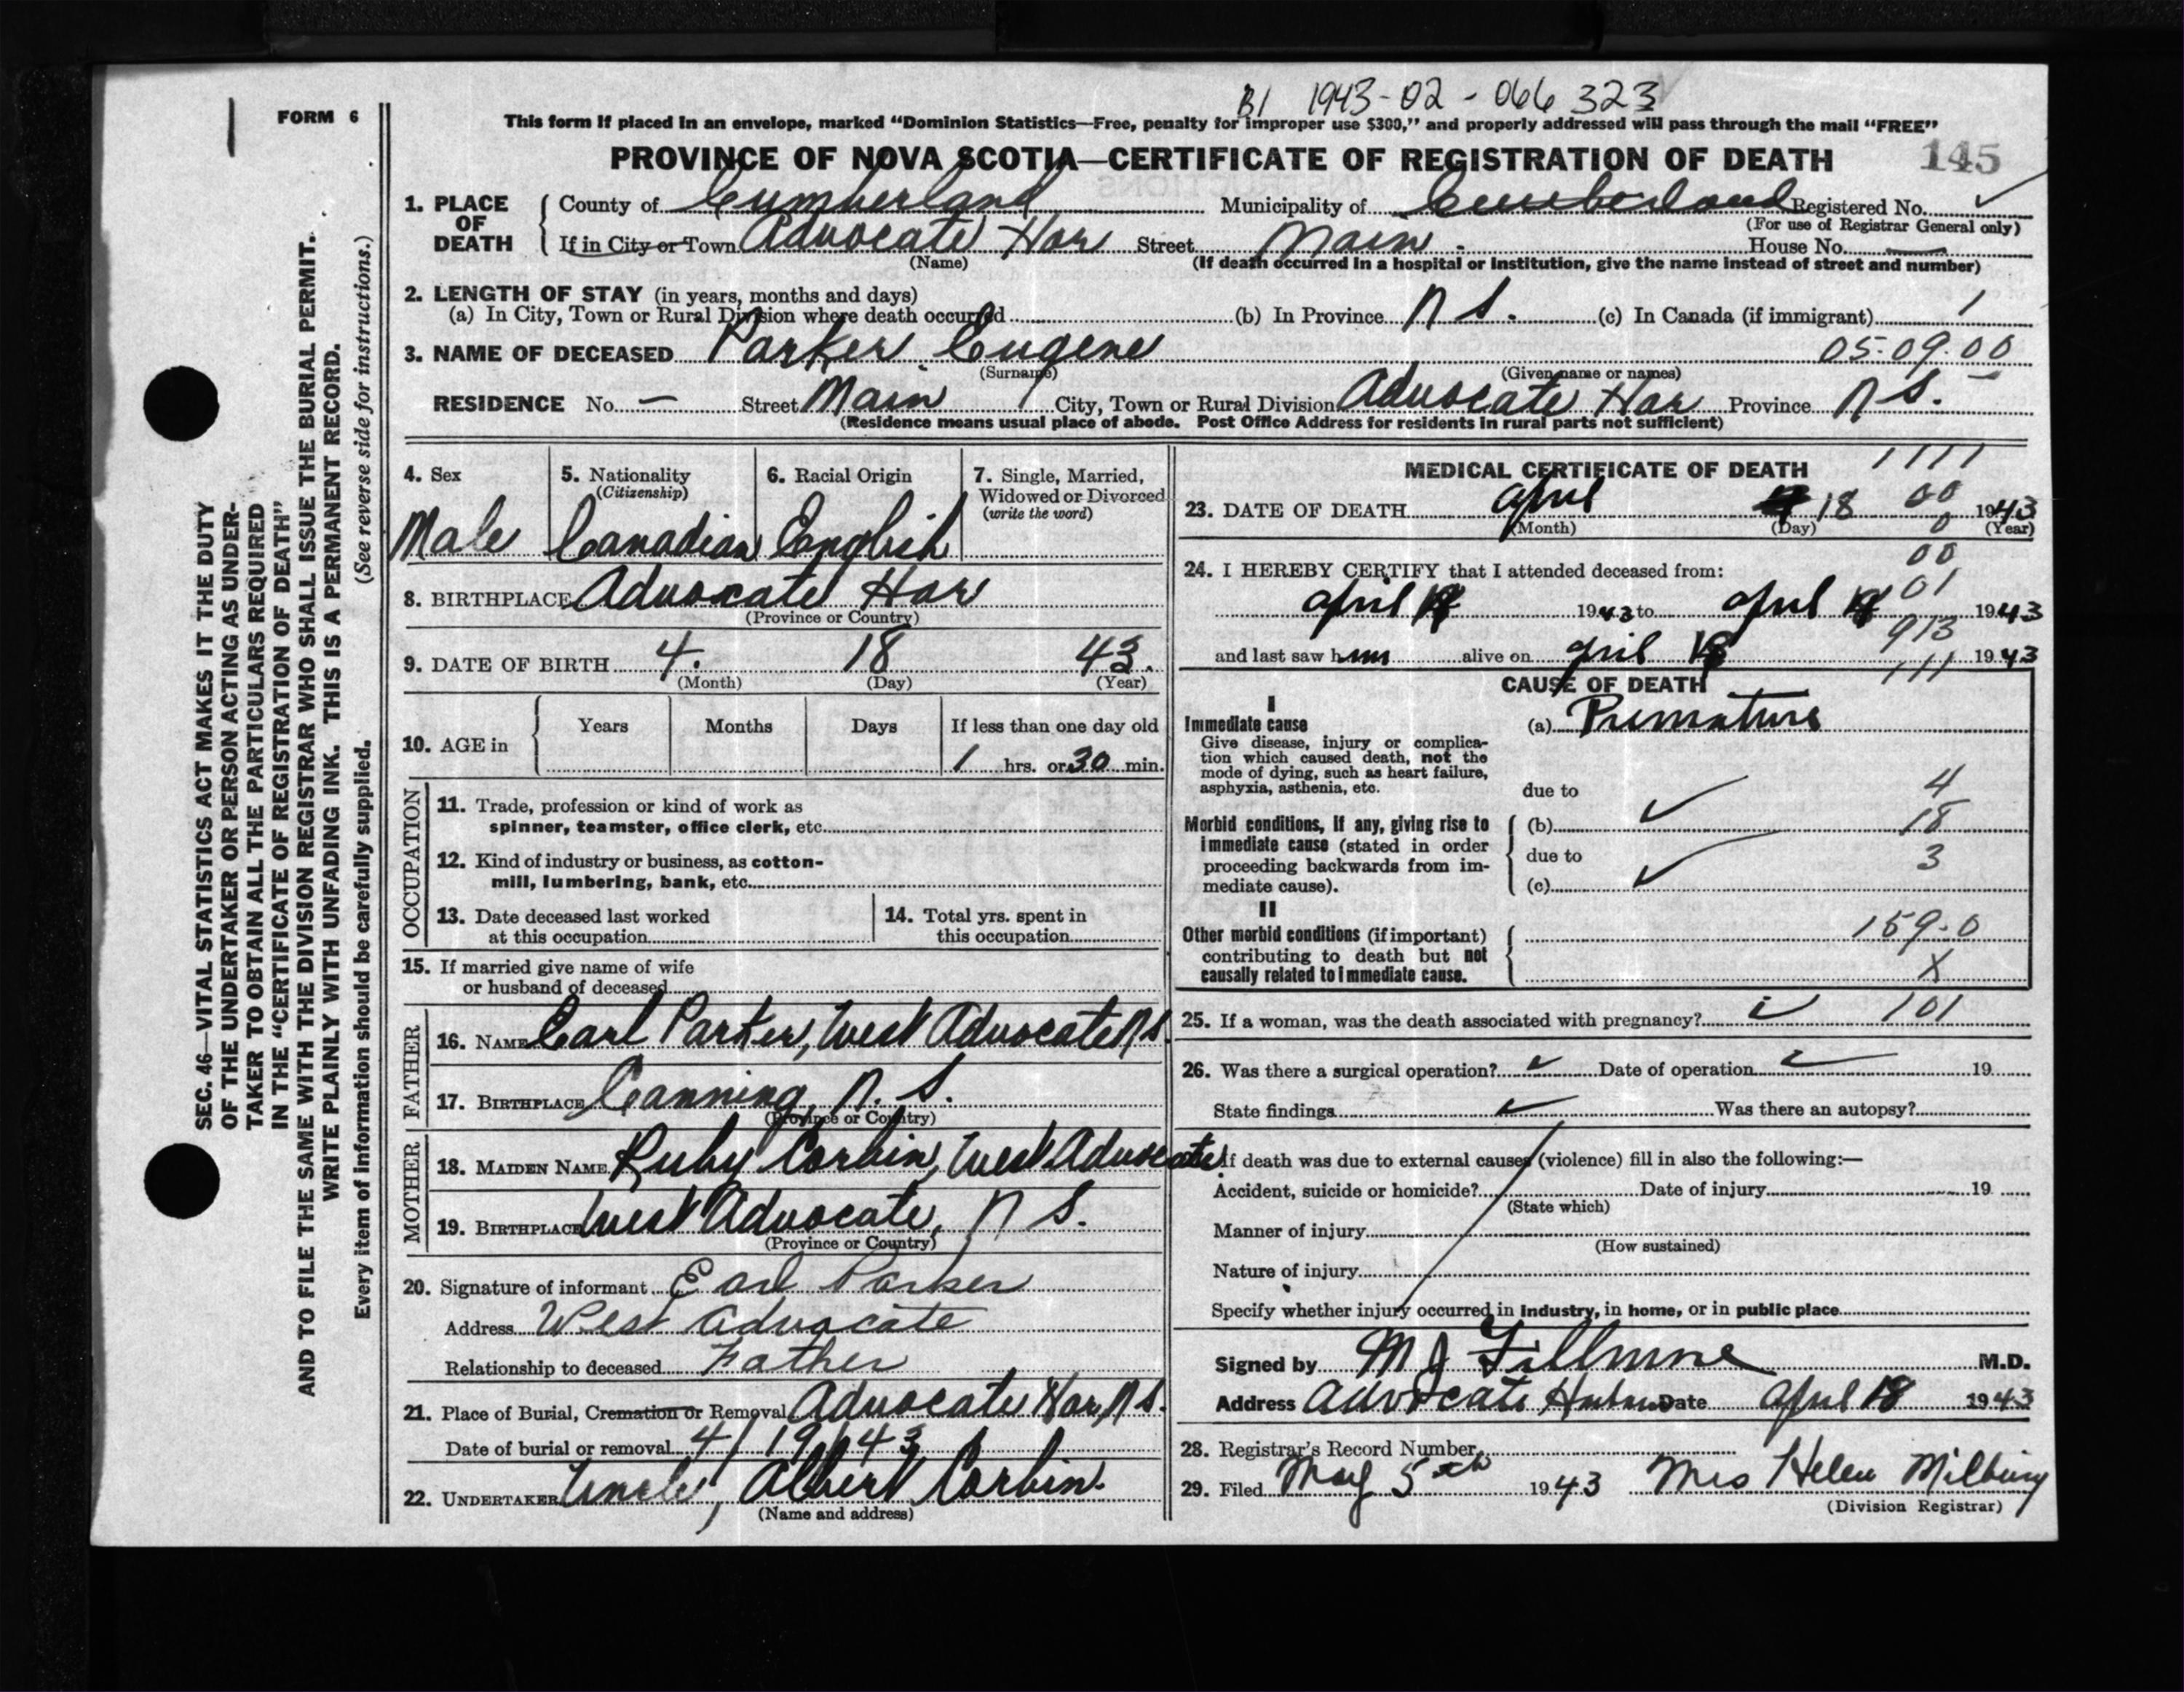 B1 1943-02-066323
FORM 6
This form if placed in an envelope, marked "Dominion Statistics—Free, penalty for improper use $300," and properly addressed will pass through the mail "FREE"
PROVINCE OF NOVA SCOTIA—CERTIFICATE OF REGISTRATION OF DEATH 145
1. PLACE OF DEATH
County of Cumberland Municipality of Cumberland Registered No.
(For use of Registrar General only)
If in City or Town Advocate Har Street Main House No. —
(Name) (If death occurred in a hospital or institution, give the name instead of street and number)
2. LENGTH OF STAY (in years, months and days)
(a) In City, Town or Rural Division where death occurred (b) In Province N S. (c) In Canada (if immigrant) 1
3. NAME OF DECEASED Parker Eugene 05-09-00
(Surname) (Given name or names)
RESIDENCE No. — Street Main City, Town or Rural Division Advocate Har Province N S.
(Residence means usual place of abode. Post Office Address for residents in rural parts not sufficient)
4. Sex
Male
5. Nationality
(Citizenship)
Canadian
6. Racial Origin
English
7. Single, Married,
Widowed or Divorced
(write the word)
8. BIRTHPLACE Advocate Har
(Province or Country)
9. DATE OF BIRTH 4. 18 43.
(Month) (Day) (Year)
10. AGE in
Years Months Days If less than one day old
1 hrs. or 30 min.
OCCUPATION
11. Trade, profession or kind of work as
spinner, teamster, office clerk, etc.
12. Kind of industry or business, as cotton-
mill, lumbering, bank, etc.
13. Date deceased last worked
at this occupation
14. Total yrs. spent in
this occupation
15. If married give name of wife
or husband of deceased
FATHER
16. NAME Earl Parker, West Advocate N S.
17. BIRTHPLACE Canning, N. S.
(Province or Country)
MOTHER
18. MAIDEN NAME Ruby Corbin, West Advocate.
19. BIRTHPLACE West Advocate, N S.
(Province or Country)
20. Signature of informant Earl Parker
Address West Advocate
Relationship to deceased Father
21. Place of Burial, Cremation or Removal Advocate Har, N S.
Date of burial or removal 4/19/43
22. UNDERTAKER Uncle, Albert Corbin.
(Name and address)
MEDICAL CERTIFICATE OF DEATH 1111
23. DATE OF DEATH April 18 00 1943
(Month) (Day) 0 (Year)
00
24. I HEREBY CERTIFY that I attended deceased from: 01
April 18 1943 to April 18 1943
913
and last saw him alive on April 18 1943
111
CAUSE OF DEATH
I
Immediate cause (a) Premature
Give disease, injury or complica-
tion which caused death, not the
mode of dying, such as heart failure,
asphyxia, asthenia, etc.
due to 4
Morbid conditions, if any, giving rise to
immediate cause (stated in order
proceeding backwards from im-
mediate cause).
(b) 18
due to 3
(c)
II
Other morbid conditions (if important)
contributing to death but not
causally related to immediate cause.
159-0
X
25. If a woman, was the death associated with pregnancy? 101
26. Was there a surgical operation? Date of operation 19
State findings Was there an autopsy?
If death was due to external causes (violence) fill in also the following:—
Accident, suicide or homicide? Date of injury 19
(State which)
Manner of injury
(How sustained)
Nature of injury
Specify whether injury occurred in industry, in home, or in public place
Signed by M J Fillmore M.D.
Address Advocate Harbour Date April 18 1943
28. Registrar's Record Number
29. Filed May 5th 1943 Mrs Helen Milbury
(Division Registrar)
SEC. 46—VITAL STATISTICS ACT MAKES IT THE DUTY
OF THE UNDERTAKER OR PERSON ACTING AS UNDER-
TAKER TO OBTAIN ALL THE PARTICULARS REQUIRED
IN THE "CERTIFICATE OF REGISTRATION OF DEATH"
AND TO FILE THE SAME WITH THE DIVISION REGISTRAR WHO SHALL ISSUE THE BURIAL PERMIT.
WRITE PLAINLY WITH UNFADING INK. THIS IS A PERMANENT RECORD.
Every item of information should be carefully supplied. (See reverse side for instructions.)